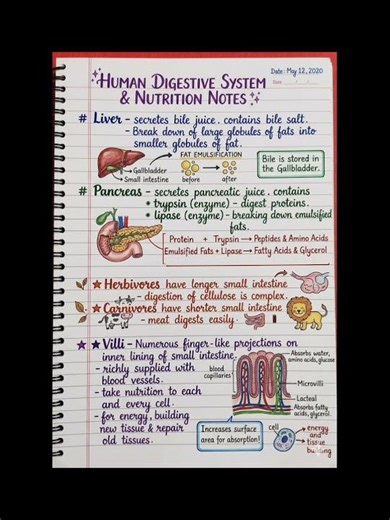 Date: May 12, 2020
Date
HUMAN DIGESTIVE SYSTEM
& NUTRITION NOTES
# Liver - secretes bile juice. contains bile salt.
- Break down of large globules of fats into
smaller globules of fat.
FAT EMULSIFICATION
Gallbladder
Small intestine
before
after
Bile is stored in
the Gallbladder.
# Pancreas - secretes pancreatic juice. contains
* trypsin (enzyme) - digest proteins.
* lipase (enzyme) - breaking down emulsified
fats.
Protein + Trypsin → Peptides & Amino Acids
Emulsified Fats + Lipase → Fatty Acids & Glycerol
★ Herbivores have longer small intestine
- digestion of cellulose is complex.
★ Carnivores have shorter small intestine
- meat digests easily
★ ★ Villi - Numerous finger-like projections on
inner lining of small intestine.
- richly supplied with
blood vessels.
- take nutrition to each
and every cell.
- for energy, building
new tissue & repair
old tissues.
blood
capillaries
Absorbs water,
amino acids, glucose
Microvilli
Lacteal
Absorbs fatty
acids, glycerol.
Increases surface
area for absorption!
cell
energy
and
tissue
building